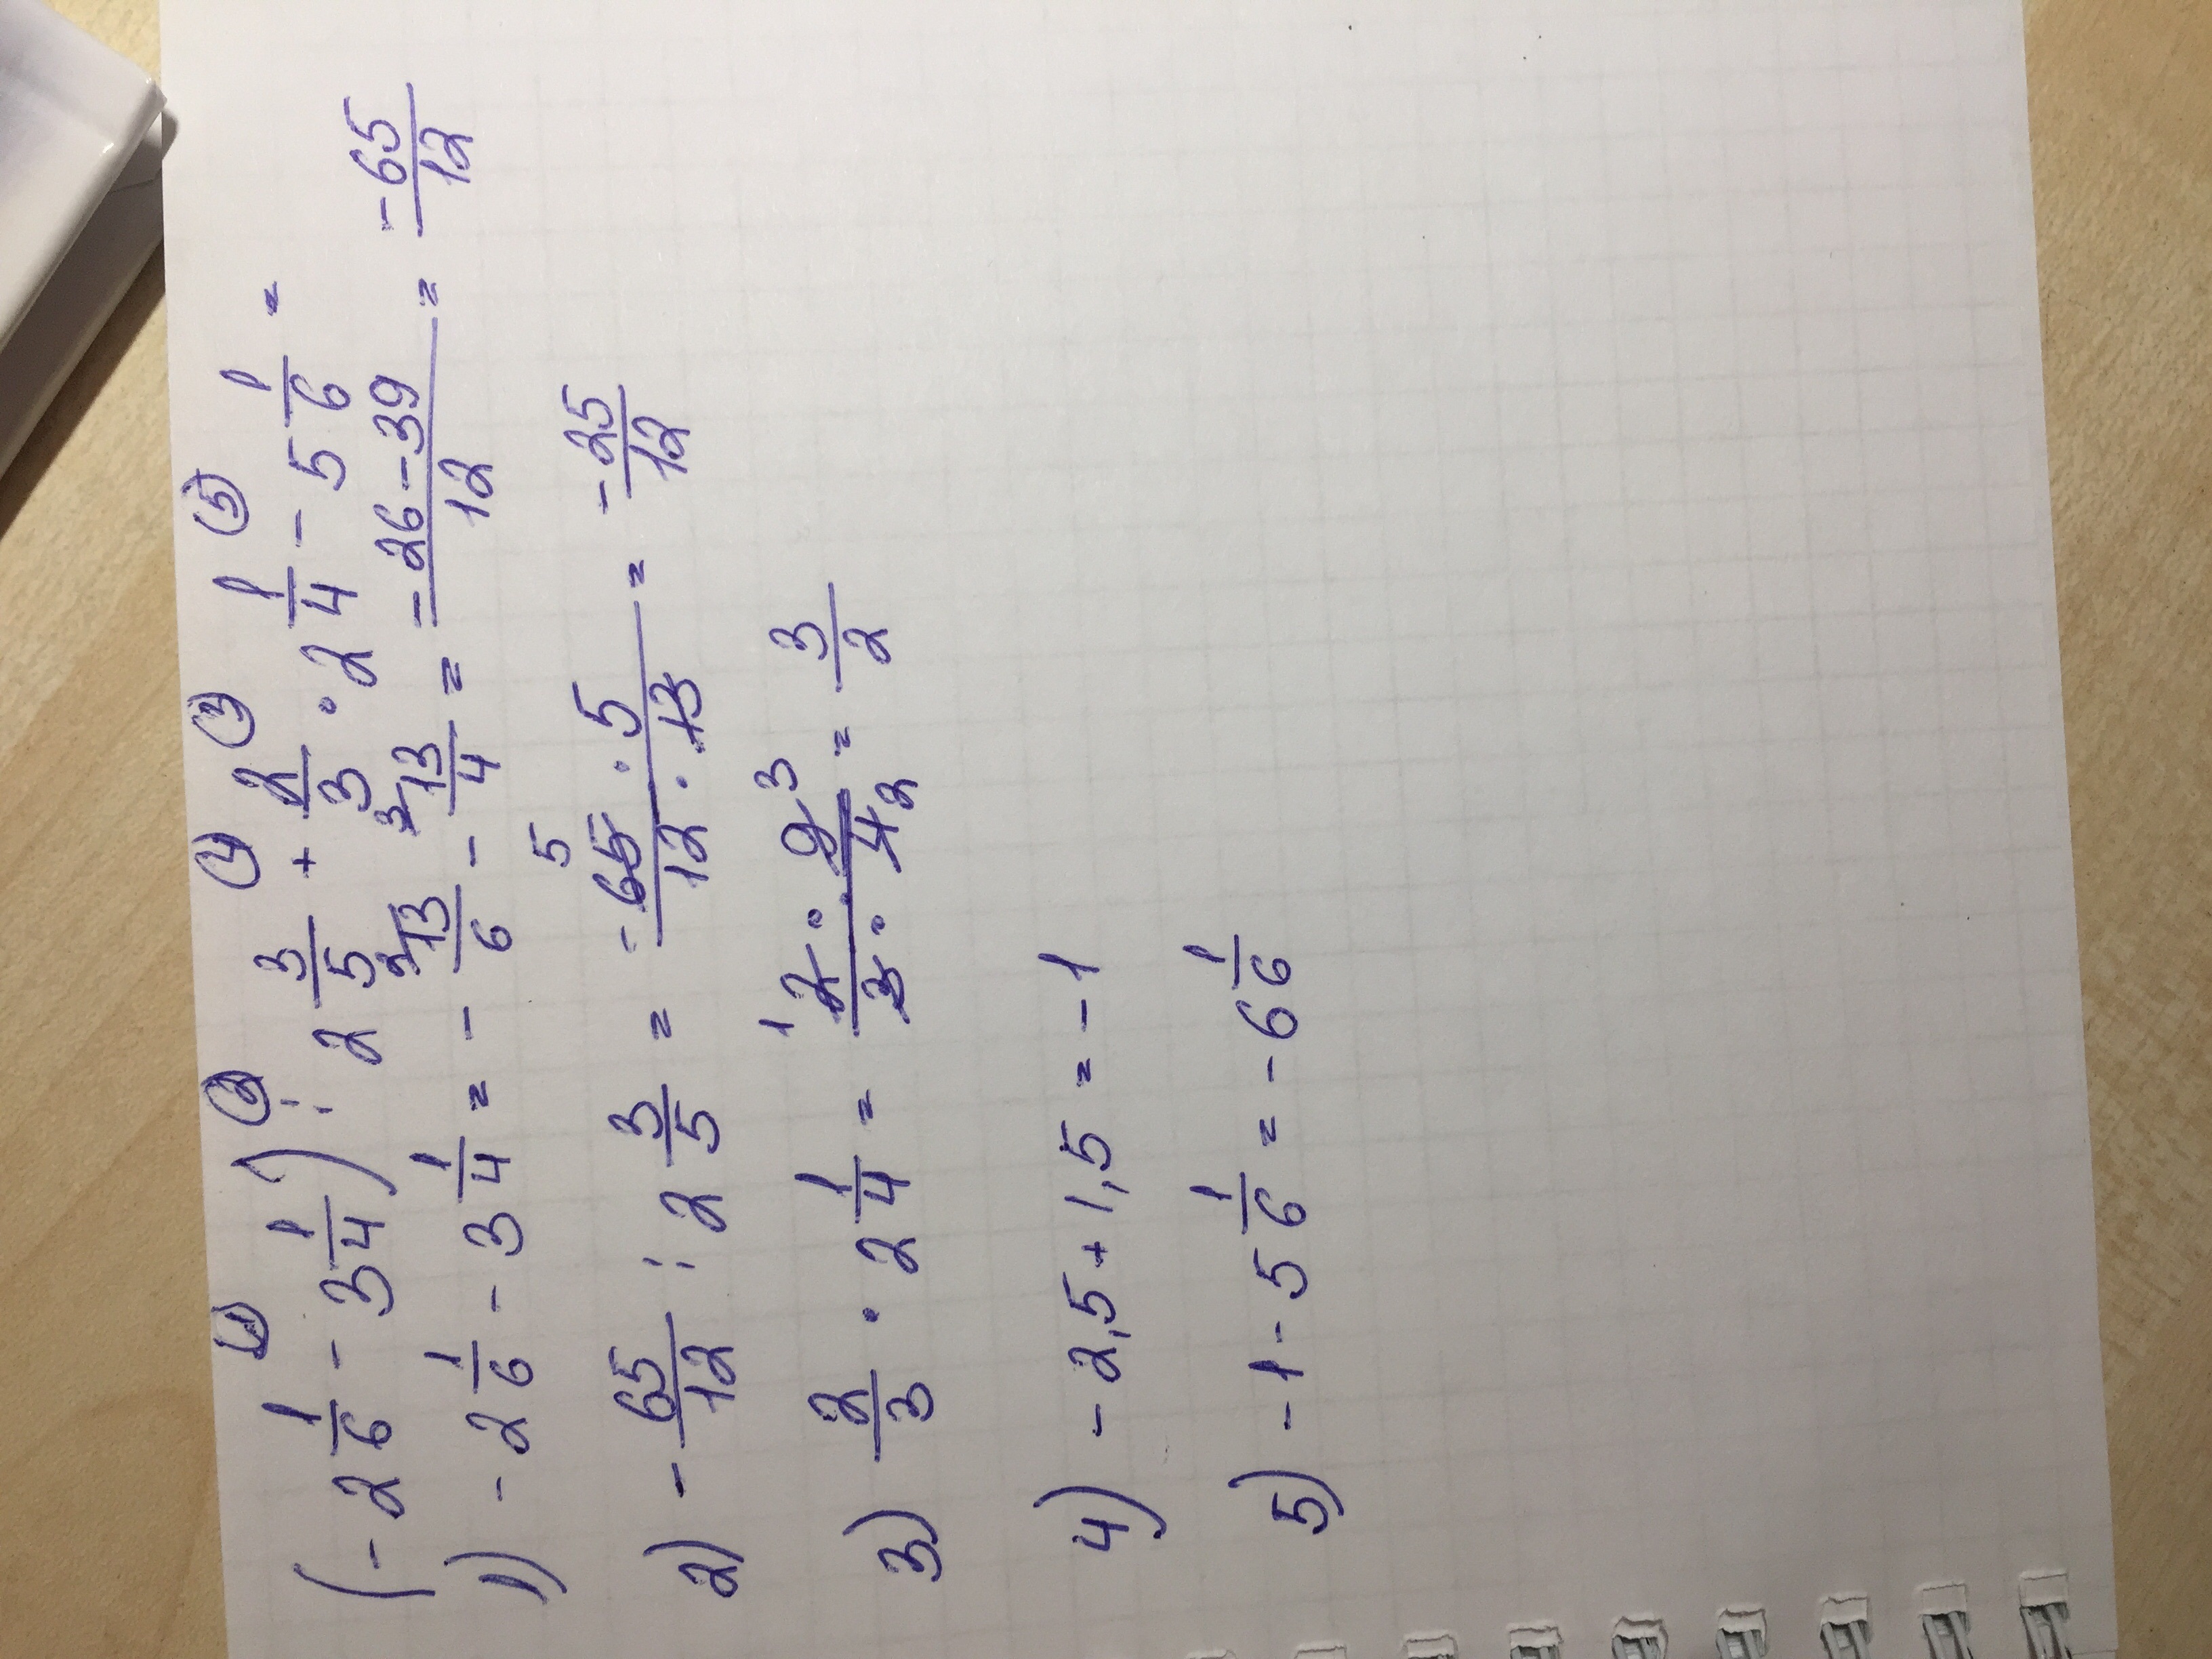 ① ② ④ ③ ⑤
(-2 1/6 - 3 1/4) : 2 3/5 + 2/3 · 2 1/4 - 5 1/6 =
1) -2 1/6 - 3 1/4 = - 13/6 - 13/4 = (-26-39)/12 = -65/12
2) - 65/12 : 2 3/5 = (-65 · 5)/(12 · 13) = -25/12
3) 2/3 · 2 1/4 = (2 · 9)/(3 · 4) = 3/2
4) -2,5+1,5 = -1
5) -1 - 5 1/6 = -6 1/6